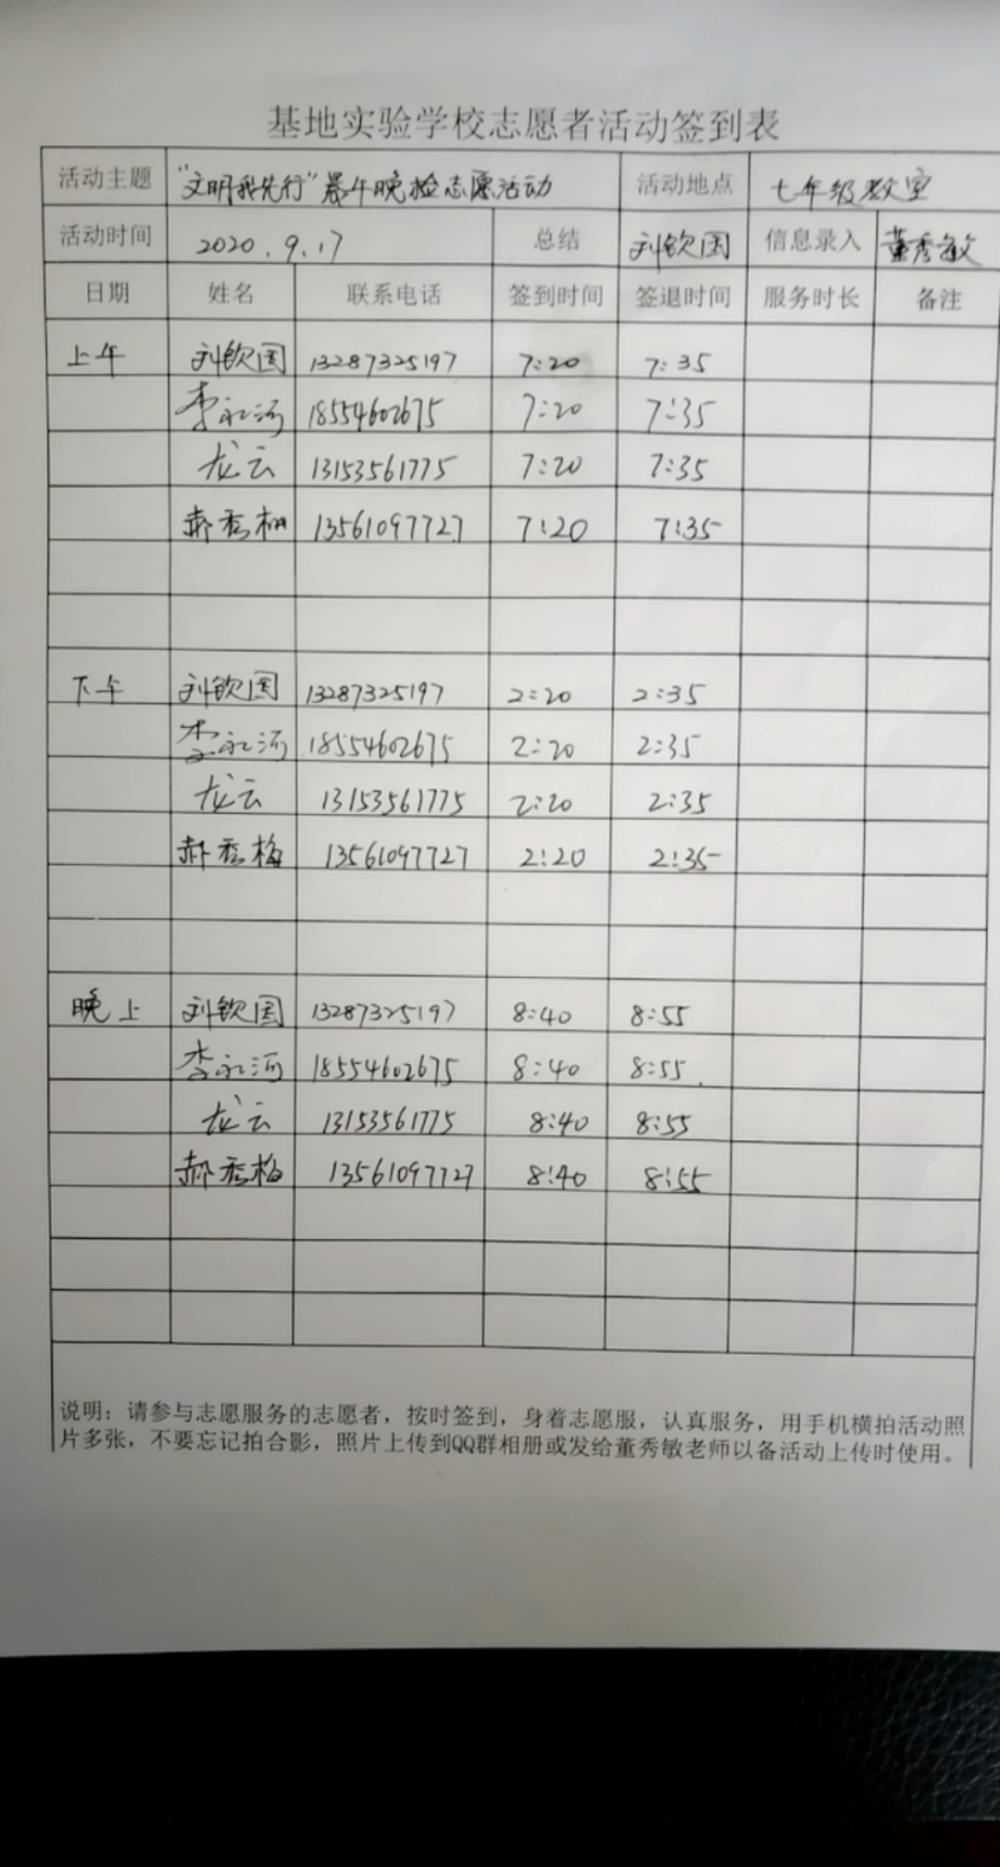 基地实验学校志愿者活动签到表
活动主题 "文明我先行"晨午晚检志愿活动 活动地点 七年级教室
活动时间 2020.9.17 总结 刘钦国 信息录入 董秀敏
日期 姓名 联系电话 签到时间 签退时间 服务时长 备注
上午 刘钦国 13287325197 7:20 7:35
李永河 18554602675 7:20 7:35
龙云 13153561775 7:20 7:35
郝秀梅 13561097727 7:20 7:35
下午 刘钦国 13287325197 2:20 2:35
李永河 18554602675 2:20 2:35
龙云 13153561775 2:20 2:35
郝秀梅 13561097727 2:20 2:35
晚上 刘钦国 13287325197 8:40 8:55
李永河 18554602675 8:40 8:55
龙云 13153561775 8:40 8:55
郝秀梅 13561097727 8:40 8:55
说明：请参与志愿服务的志愿者，按时签到，身着志愿服，认真服务，用手机横拍活动照
片多张，不要忘记拍合影，照片上传到QQ群相册或发给董秀敏老师以备活动上传时使用。